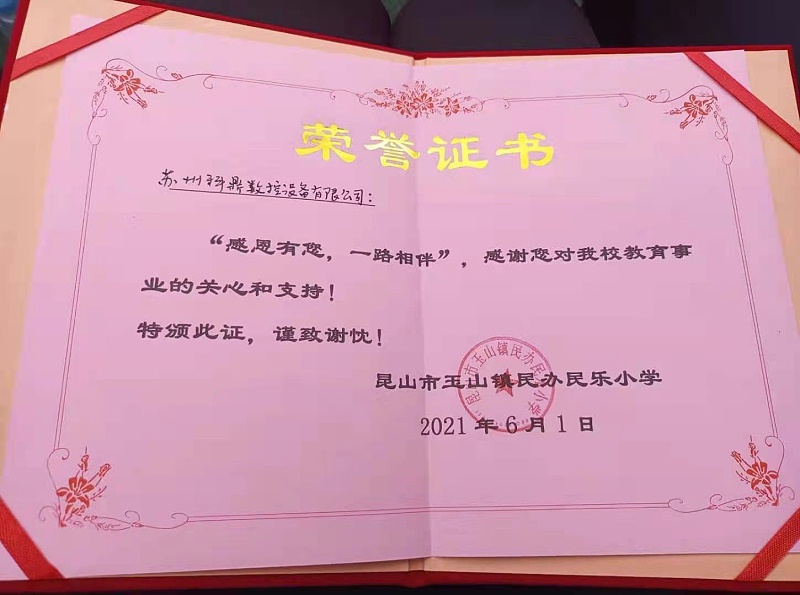 荣誉证书
苏州科鼎数控设备有限公司：
“感恩有您，一路相伴”，感谢您对我校教育事
业的关心和支持！
特颁此证，谨致谢忱！
昆山市玉山镇民办民乐小学
2021年6月1日